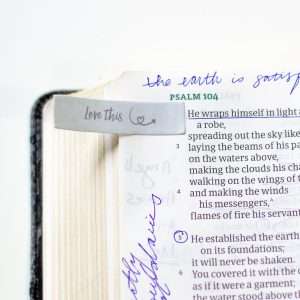 the earth is satisf
PSALM 104
Love This
He wraps himself in light a
a robe,
spreading out the sky like
3 laying the beams of his pa
on the waters above,
making the clouds his cha
walking on the wings of t
4 and making the winds
his messengers,^
flames of fire his servant
5 He established the earth
on its foundations;
it will never be shaken.
6 You covered it with the d
as if it were a garment;
the water stood above th